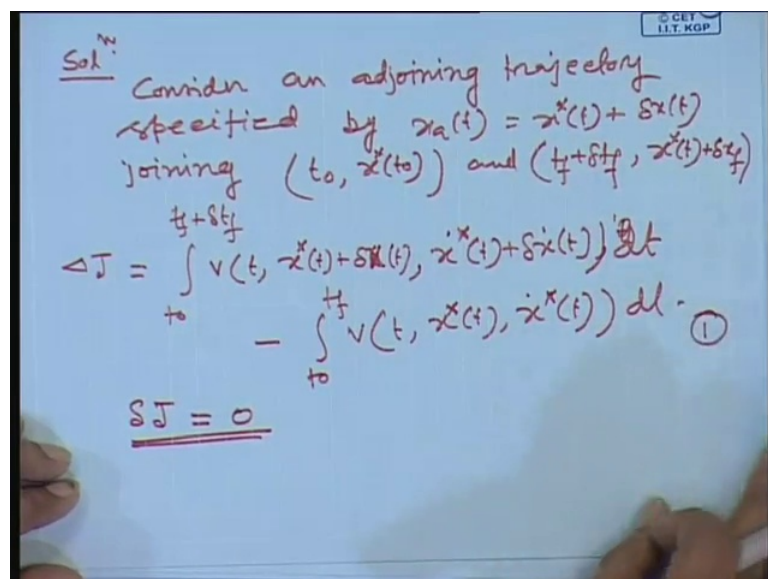 © CET
I.I.T. KGP
Solⁿ:
Consider an adjoining trajectory
specified by xₐ(t) = x*(t) + δx(t)
joining (t₀, x*(t₀)) and (t_f+δt_f, x*(t)+δx_f)
ΔJ = ∫_{t₀}^{t_f+δt_f} V(t, x*(t)+δx(t), ẋ*(t)+δẋ(t)) dt
− ∫_{t₀}^{t_f} V(t, x*(t), ẋ*(t)) dt. ①
δJ = 0